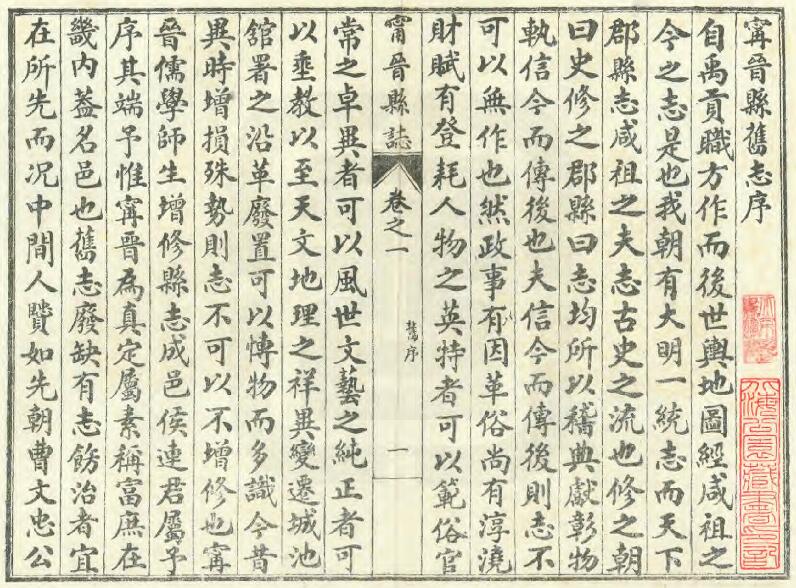 甯晉縣舊志序
自禹貢職方作而後世輿地圖經咸祖之
今之志是也我朝有大明一統志而天下
郡縣志咸祖之夫志古史之流也修之朝
曰史修之郡縣曰志均所以稽典獻彰物
執信今而傳後也夫信今而傳後則志不
可以無作也然政事有因革俗尚有淳澆
財賦有登耗人物之英特者可以範俗官
甯晉縣誌
卷之一
舊序
一
常之卓異者可以風世文藝之純正者可
以垂教以至天文地理之祥異變遷城池
舘署之沿革廢置可以愽物而多識今昔
異時增損殊勢則志不可以不增修也甯
晉儒學師生增修縣志成邑侯連君屬予
序其端予惟甯晉為真定屬素稱富庶在
畿内葢名邑也舊志廢缺有志飭治者宜
在所先而况中間人贒如先朝曹文忠公